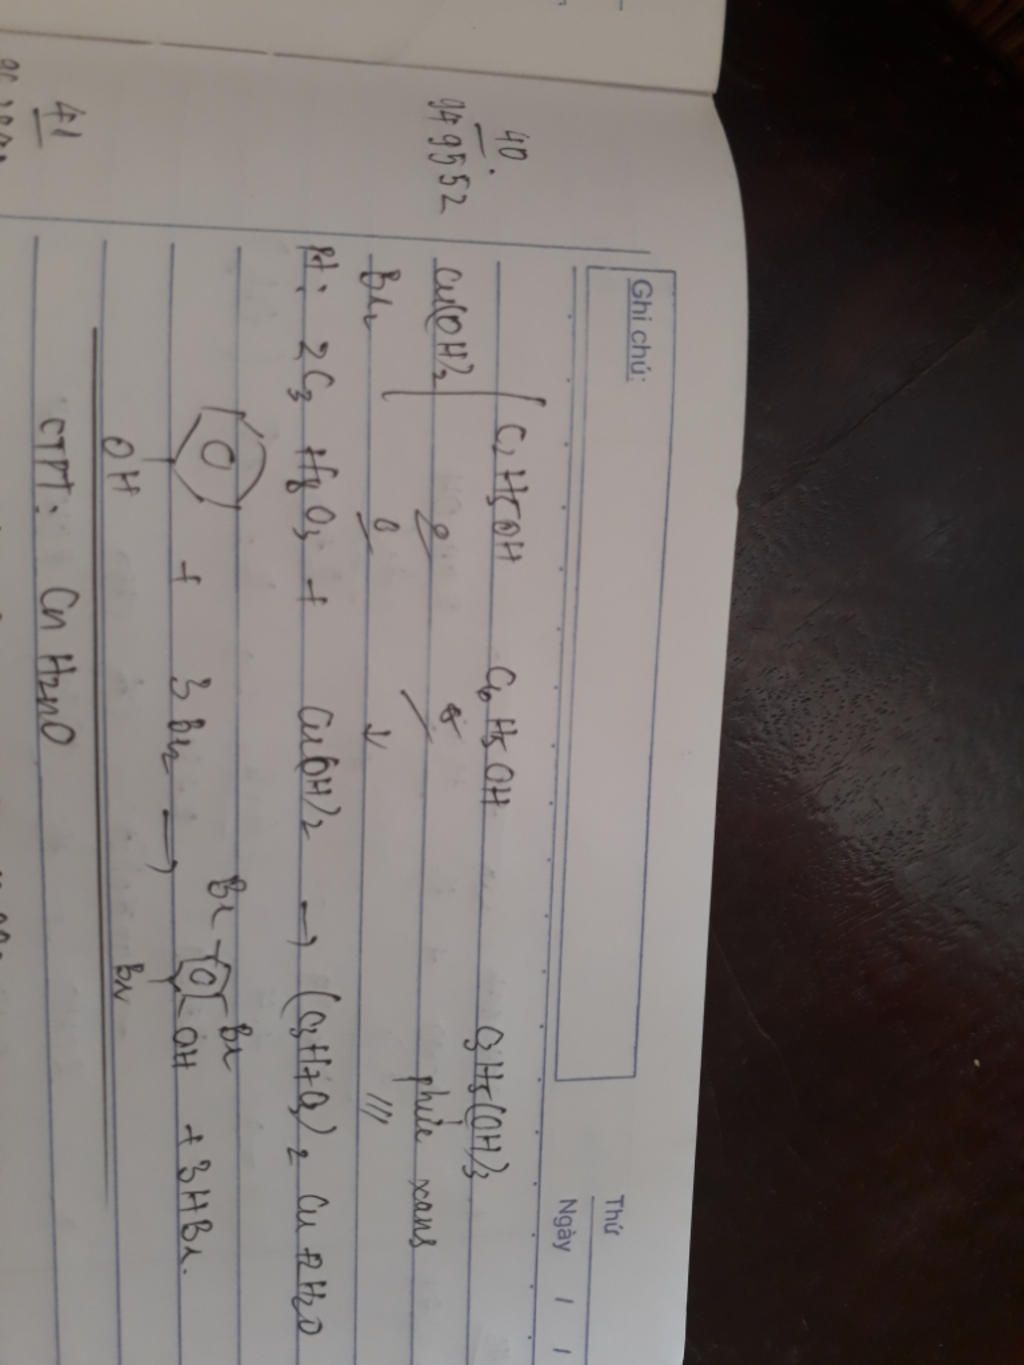 Ghi chú:
Thứ
Ngày / /
40.
949552
C2H5OH C6H5OH C3H5(OH)3
Cu(OH)2 phức xanh
Br2 ↓ ///
Pt: 2C3H8O3 + Cu(OH)2 → (C3H7O3)2Cu + H2O
OH + 3Br2 → Br Br OH Br + 3HBr.
41
CTPT: CnH2nO